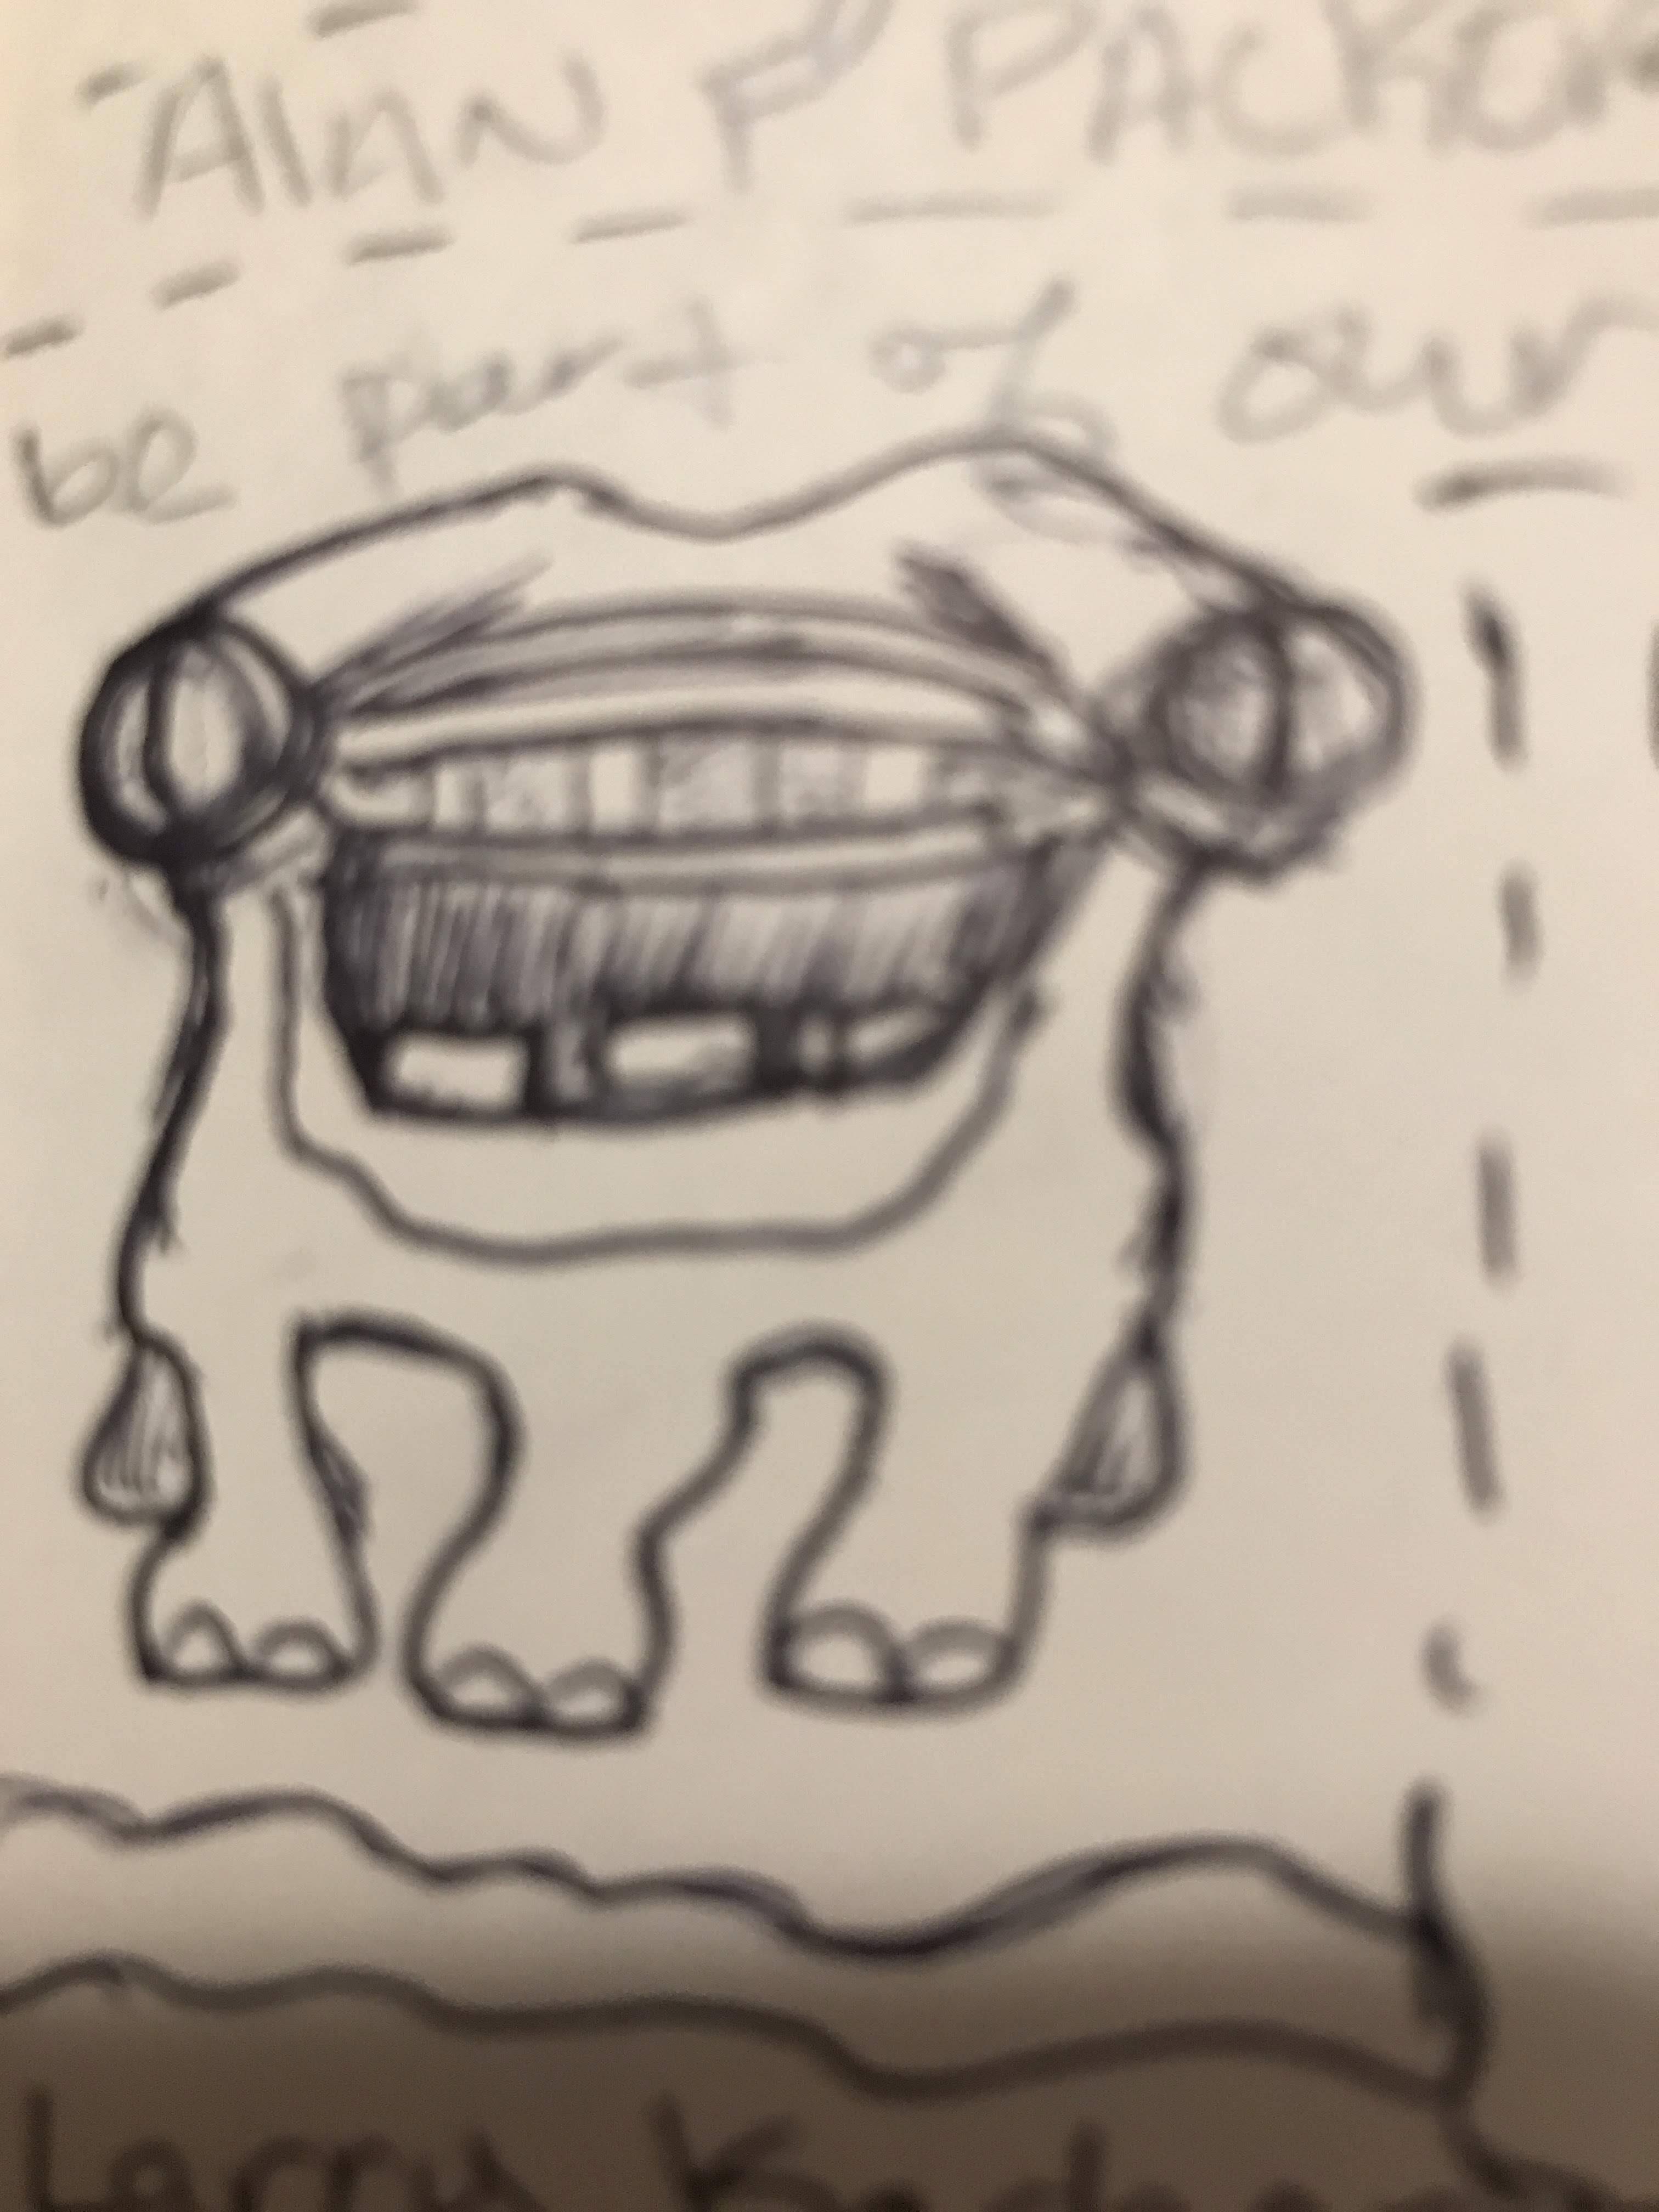 Alan P PACKOR
be part of our
Larry